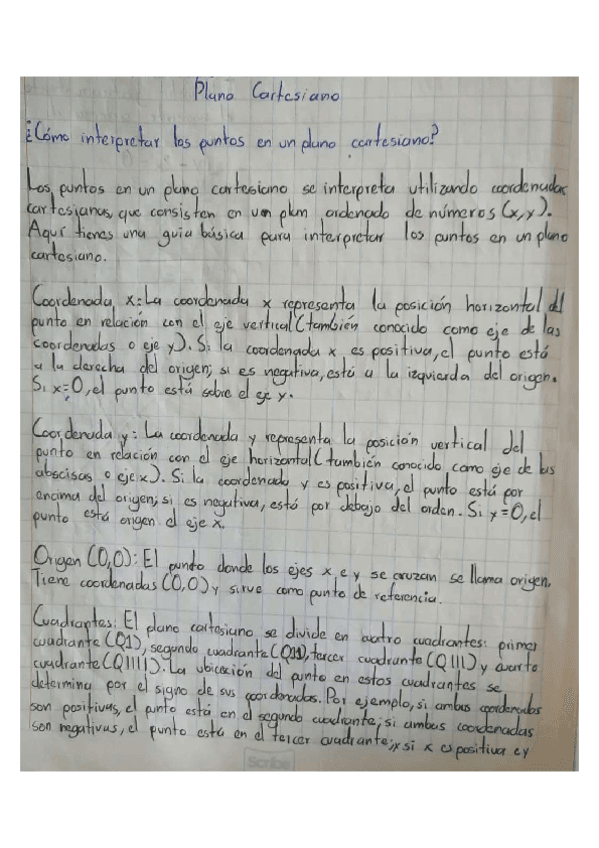 Plano Cartesiano
¿Cómo interpretar los puntos en un plano cartesiano?
Los puntos en un plano cartesiano se interpreta utilizando coordenadas
cartesianas, que consisten en un ordenado de números (x,y).
Aquí tienes una guia básica para interpretar los puntos en un plano
cartesiano.
Coordenada x: La coordenada x representa la posición horizontal del
punto en relación con el eje vertical (también conocido como eje de las
coordenadas o eje y). Si la coordenada x es positiva, el punto está
a la derecha del origen; si es negativa, está a la izquierda del origen.
Si x=0, el punto está sobre el eje y.
Coordenada y: La coordenada y representa la posición vertical del
punto en relación con el eje horizontal (también conocido como eje de las
abscisas o eje x). Si la coordenada y es positiva, el punto está por
encima del origen; si es negativa, está por debajo del orden. Si y=0, el
punto está origen el eje x.
Origen (0,0): El punto donde los ejes x e y se cruzan se llama origen.
Tiene coordenadas (0,0) y sirve como punto de referencia.
Cuadrantes: El plano cartesiano se divide en cuatro cuadrantes: primer
cuadrante (Q1), segundo cuadrante tercer cuadrante (QIII) y cuarto
cuadrante (QIIII). La ubicación del punto en estos cuadrantes se
determina por el signo de sus coordenadas. Por ejemplo, si ambas coordenadas
son positivas, el punto está en el segundo cuadrante; si ambas coordenadas
son negativas, el punto está en el tercer cuadrante; si x es positiva e y
Scribe